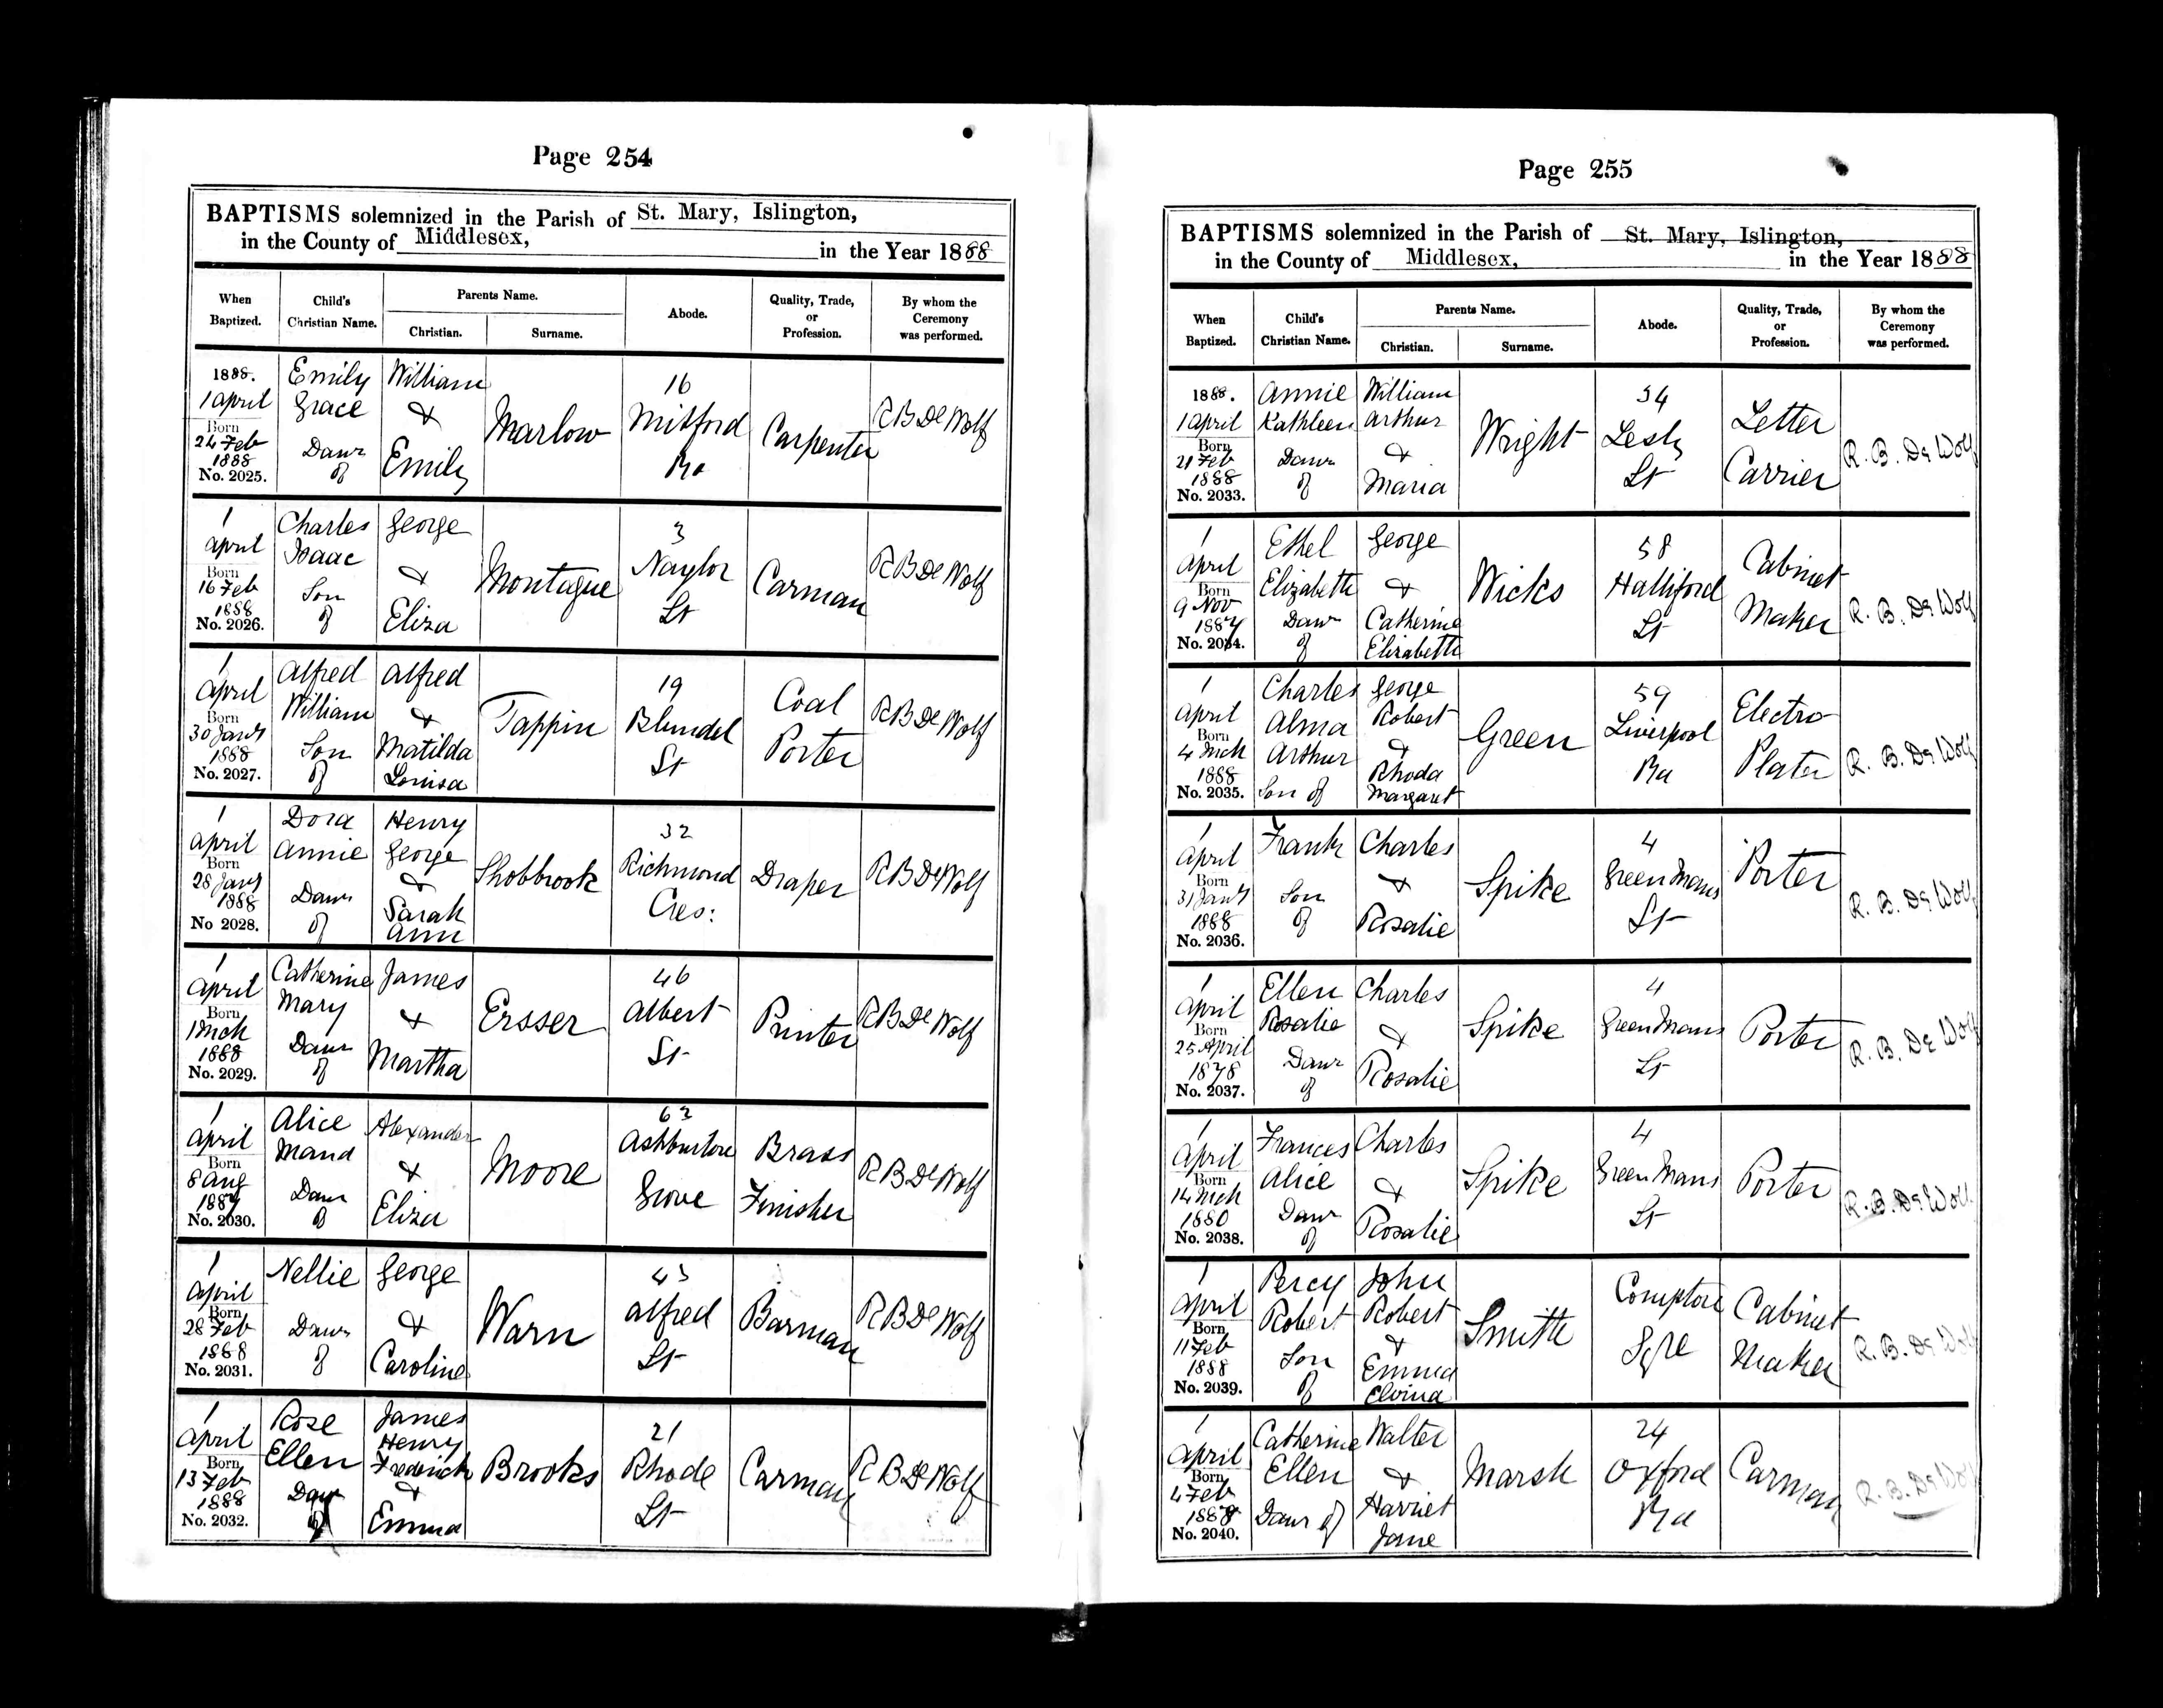 Page 254
BAPTISMS solemnized in the Parish of St. Mary, Islington,
in the County of Middlesex, in the Year 1888
When Baptized.
Child's Christian Name.
Parents Name.
Christian.
Surname.
Abode.
Quality, Trade, or Profession.
By whom the Ceremony was performed.
1888. 1 April Born 24 Feb 1888 No. 2025.
Emily Grace Daur of
William & Emily
Marlow
16 Mitford Rd
Carpenter
R B De Wolf
1 April Born 16 Feb 1888 No. 2026.
Charles Isaac Son of
George & Eliza
Montague
3 Naylor St
Carman
R B De Wolf
1 April Born 30 Jany 1888 No. 2027.
Alfred William Son of
Alfred & Matilda Louisa
Tappin
19 Blundel St
Coal Porter
R B De Wolf
1 April Born 28 Jany 1888 No 2028.
Dora Annie Daur of
Henry George & Sarah Ann
Shobbrook
32 Richmond Cres:
Draper
R B De Wolf
1 April Born 1 Mch 1888 No. 2029.
Catherine Mary Daur of
James & Martha
Ersser
46 Albert St
Printer
R B De Wolf
1 April Born 8 Aug 1887 No. 2030.
Alice Maud Daur of
Alexander & Eliza
Moore
63 Ashburton Grove
Brass Finisher
R B De Wolf
1 April Born 28 Feb 1888 No. 2031.
Nellie Daur of
George & Caroline
Warn
43 Alfred St
Barman
R B De Wolf
1 April Born 13 Feb 1888 No. 2032.
Rose Ellen Daur of
James Henry Frederick & Emma
Brooks
21 Rhode St
Carman
R B De Wolf
Page 255
BAPTISMS solemnized in the Parish of St. Mary, Islington,
in the County of Middlesex, in the Year 1888
When Baptized.
Child's Christian Name.
Parents Name.
Christian.
Surname.
Abode.
Quality, Trade, or Profession.
By whom the Ceremony was performed.
1888. 1 April Born 21 Feb 1888 No. 2033.
Annie Kathleen Daur of
William Arthur & Maria
Wright
34 St
Letter Carrier
R. B. De Wolf
1 April Born 9 Nov 1887 No. 2034.
Ethel Elizabeth Daur of
George & Catherine Elizabeth
Wicks
58 Halliford St
Cabinet Maker
R. B. De Wolf
1 April Born 4 Mch 1888 No. 2035.
Charles Alma Arthur Son of
George Robert & Rhoda Margaret
Green
59 Liverpool Rd
Electro Plater
R. B. De Wolf
1 April Born 31 Jany 1888 No. 2036.
Frank Son of
Charles & Rosalie
Spike
4 Green Mans St
Porter
R. B. De Wolf
1 April Born 25 April 1878 No. 2037.
Ellen Rosalie Daur of
Charles & Rosalie
Spike
4 Green Mans St
Porter
R. B. De Wolf
1 April Born 14 Mch 1880 No. 2038.
Frances Alice Daur of
Charles & Rosalie
Spike
4 Green Mans St
Porter
R. B. De Wolf
1 April Born 11 Feb 1888 No. 2039.
Percy Robert Son of
John Robert & Emma Elvina
Smith
Compton Sqre
Cabinet Maker
R. B. De Wolf
1 April Born 4 Feb 1888 No. 2040.
Catherine Ellen Daur of
Walter & Harriet Jane
Marsh
24 Oxford Rd
Carman
R. B. De Wolf